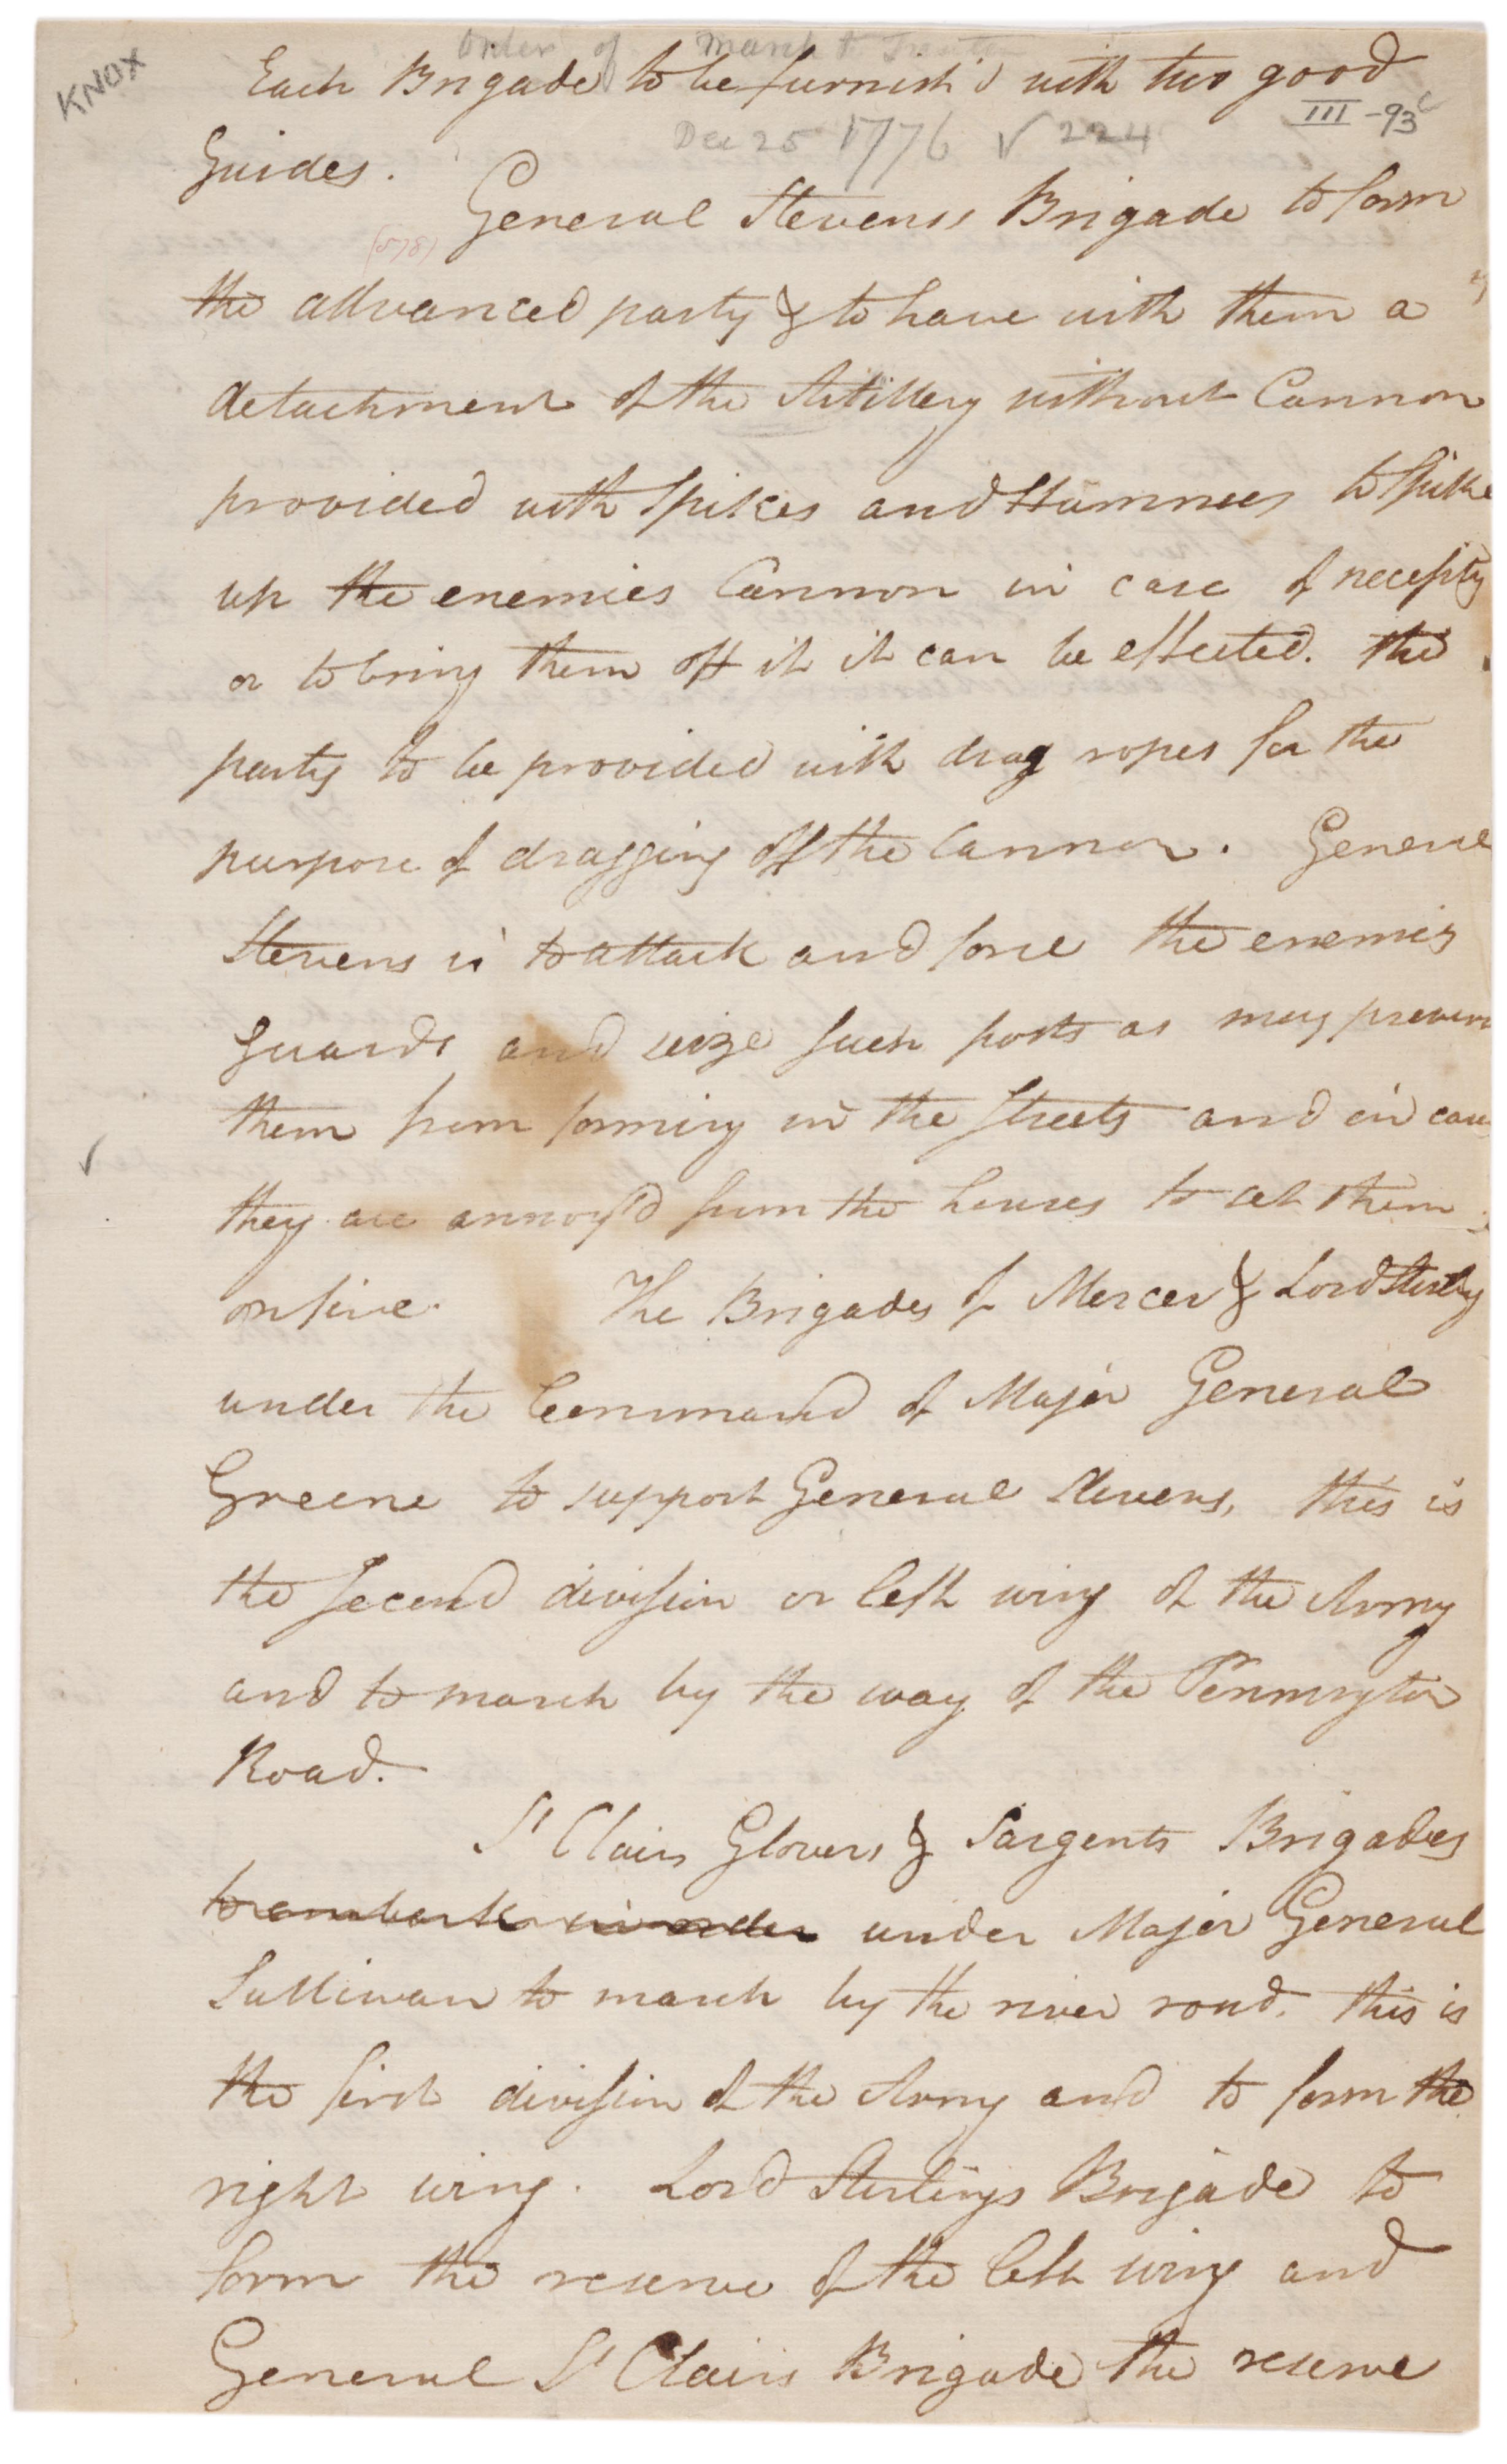 KNOX
Order of March to Trenton
Each Brigade to be furnish'd with two good
III - 93c
Dec 25 1776 √ 224
Guides.
General Stevens's Brigade to form
(578)
the advanced party & to have with them a
detachment of the Artillery without Cannon
provided with Spikes and Hammers to Spike
up the enemies Cannon in case of necessity
or to bring them off if it can be effected. the
party to be provided with drag ropes for the
purpose of dragging off the Cannon. General
Stevens is to attack and force the enemies
guards and seize such posts as may prevent
them from forming in the Streets and in case
they are annoy'd from the houses to set them
on fire. The Brigades of Mercer & Lord Sterling
under the Command of Major General
Greene to support General Stevens, this is
the second division or left wing of the Army
and to march by the way of the Pennington
Road.
St Clairs Glovers & Sargents Brigades
to embark in order under Major General
Sullivan to march by the river road. this is
the first division of the Army and to form the
right wing. Lord Sterlings Brigade to
form the reserve of the left wing and
General St Clairs Brigade the reserve